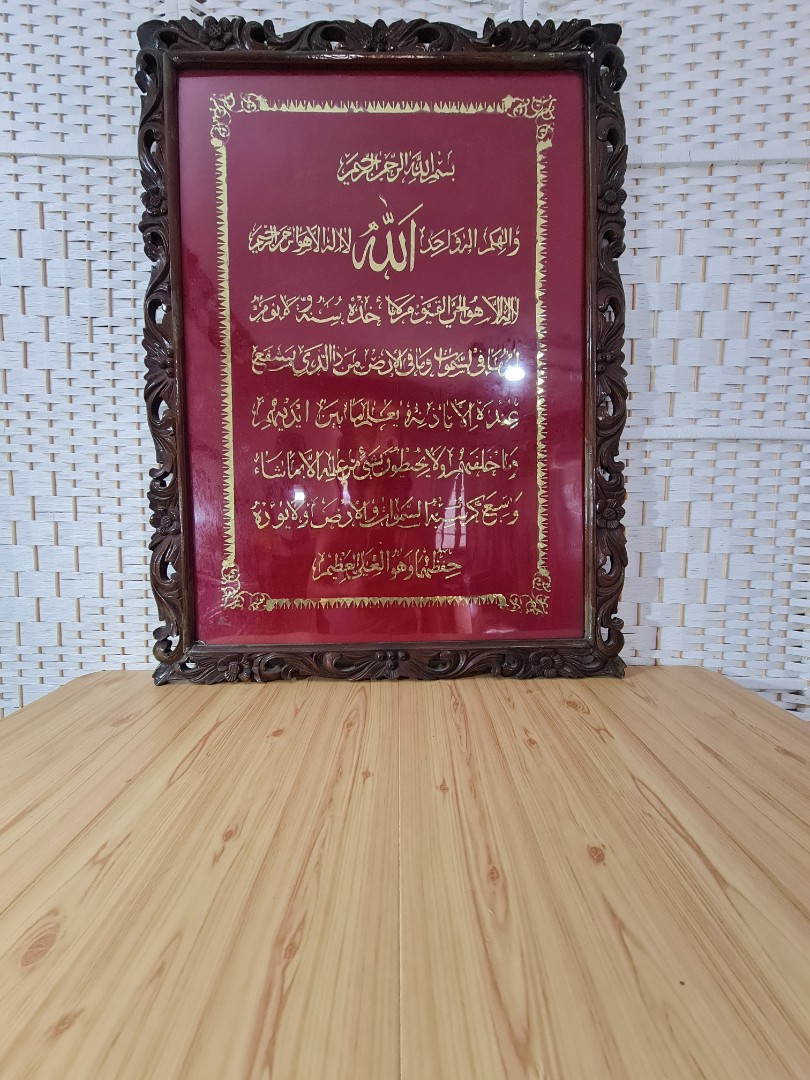 بسم الله الرحمن الرحيم
والهكم اله واحد الله لا اله الا هو الرحمن الرحيم
الله لا اله الا هو الحي القيوم لا تأخذه سنة ولا نوم
له ما في السموات وما في الارض من ذا الذي يشفع
عنده الا باذنه يعلم ما بين ايديهم
وما خلفهم ولا يحيطون بشيء من علمه الا بما شاء
وسع كرسيه السموات والارض ولا يؤده
حفظهما وهو العلي العظيم